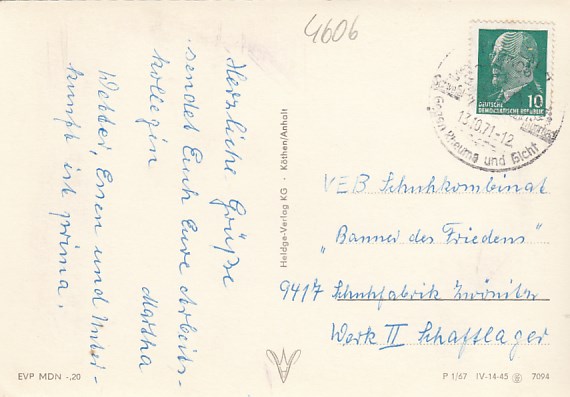 4606
DEUTSCHE
DEMOKRATISCHE REPUBLIK
10
13.10.71-12
Gegen Rheuma und Gicht
Herzliche Grüße
sendet Euch Eure Arbeits-
kollegin
Martha
Wetter, Essen und Unter-
kunft ist prima.
Heldge-Verlag KG · Köthen/Anhalt
VEB Schuhkombinat
„Banner des Friedens"
9417 Schuhfabrik Zwönitz
Werk II Schaftlager
EVP MDN -,20
P 1/67 IV-14-45 7094